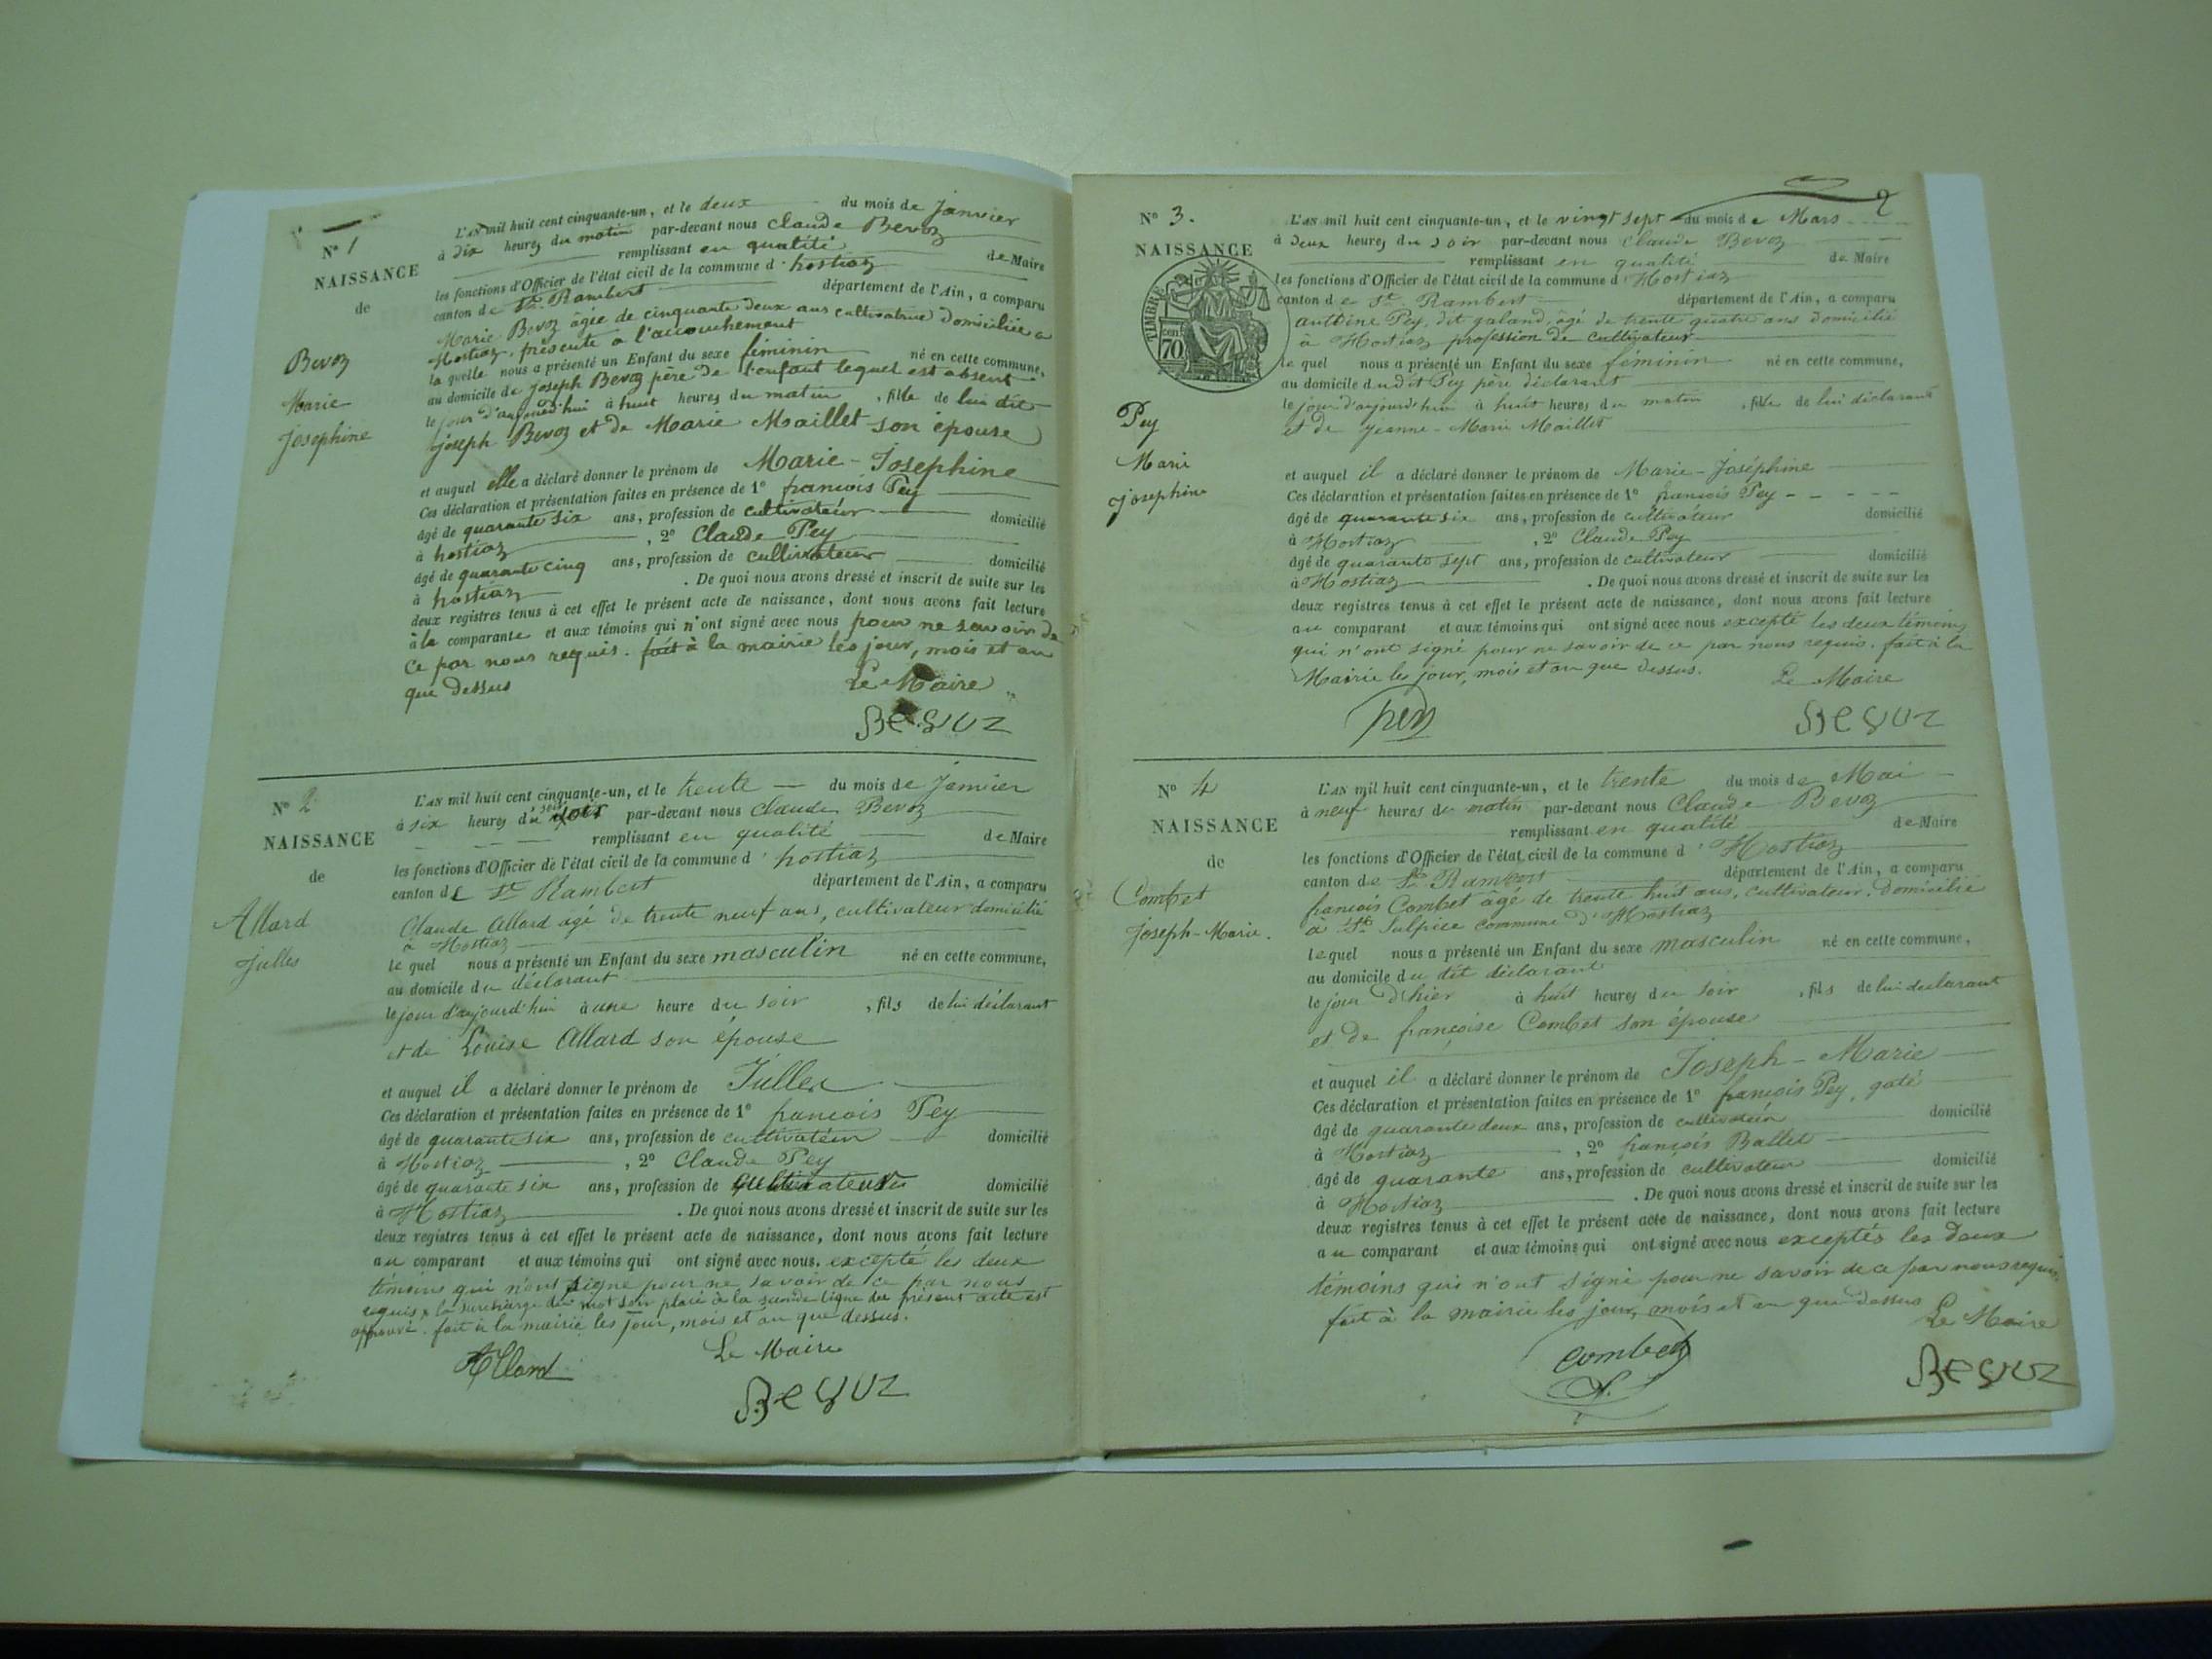 N° 1
NAISSANCE
de
Bevoz
Marie
Josephine
L'AN mil huit cent cinquante-un, et le deux du mois de Janvier
à dix heures du matin par-devant nous Claude Bevoz
remplissant en qualité de Maire
les fonctions d'Officier de l'état civil de la commune d'hostiaz
canton de St. Rambert département de l'Ain, a comparu
Marie Bevoz âgée de cinquante deux ans cultivatrice domiciliée a
Hostiaz, présente a l'accouchement
la quelle nous a présenté un Enfant du sexe féminin né en cette commune,
au domicile de joseph Bevoz père de l'enfant lequel est absent
le jour d'aujourd'hui à huit heures du matin, fille de lui dit
joseph Bevoz et de Marie Maillet son épouse
et auquel elle a déclaré donner le prénom de Marie-Josephine
Ces déclaration et présentation faites en présence de 1° francois Pey
âgé de quarante six ans, profession de cultivateur domicilié
à hostiaz, 2° Claude Pey
âgé de quarante cinq ans, profession de cultivateur domicilié
à hostiaz. De quoi nous avons dressé et inscrit de suite sur les
deux registres tenus à cet effet le présent acte de naissance, dont nous avons fait lecture
à la comparante et aux témoins qui n'ont signé avec nous pour ne savoir de
ce par nous requis. fait à la mairie les jour, mois et an
que dessus Le Maire
Bevoz
N° 2
NAISSANCE
de
Allard
Julles
L'AN mil huit cent cinquante-un, et le trente du mois de Janvier
à six heures du soir par-devant nous Claude Bevoz
remplissant en qualité de Maire
les fonctions d'Officier de l'état civil de la commune d'hostiaz
canton de St Rambert département de l'Ain, a comparu
Claude Allard agé de trente neuf ans, cultivateur domicilié
à Hostiaz
le quel nous a présenté un Enfant du sexe masculin né en cette commune,
au domicile du déclarant
le jour d'aujourd'hui à une heure du soir, fils de lui déclarant
et de Louise Allard son épouse
et auquel il a déclaré donner le prénom de Julles
Ces déclaration et présentation faites en présence de 1° francois Pey
âgé de quarante six ans, profession de cultivateur domicilié
à Hostiaz, 2° Claude Pey
âgé de quarante six ans, profession de cultivateur domicilié
à Hostiaz. De quoi nous avons dressé et inscrit de suite sur les
deux registres tenus à cet effet le présent acte de naissance, dont nous avons fait lecture
au comparant et aux témoins qui ont signé avec nous. excepté les deux
témoins qui n'ont signé pour ne savoir de ce par nous
requis x la surcharge du mot soir placé à la seconde ligne du présent acte est
approuvé. fait à la mairie les jour, mois et an que dessus.
Allard Le Maire
Bevoz
2
N° 3.
NAISSANCE
TIMBRE
70
Pey
Marie
josephine
L'AN mil huit cent cinquante-un, et le vingt sept du mois de Mars
à deux heures du soir par-devant nous Claude Bevoz
remplissant en qualité de Maire
les fonctions d'Officier de l'état civil de la commune d'Hostiaz
canton de St. Rambert département de l'Ain, a comparu
antoine Pey, dit galand, âgé de trente quatre ans domicilié
à Hostiaz profession de cultivateur
le quel nous a présenté un Enfant du sexe féminin né en cette commune,
au domicile dudit Pey père déclarant
le jour d'aujourd'hui à huit heures du matin, fille de lui déclarant
et de Jeanne-Marie Maillet
et auquel il a déclaré donner le prénom de Marie-Joséphine
Ces déclaration et présentation faites en présence de 1° francois Pey
âgé de quarante six ans, profession de cultivateur domicilié
à Hostiaz, 2° Claude Pey
âgé de quarante sept ans, profession de cultivateur domicilié
à Hostiaz. De quoi nous avons dressé et inscrit de suite sur les
deux registres tenus à cet effet le présent acte de naissance, dont nous avons fait lecture
au comparant et aux témoins qui ont signé avec nous excepté les deux témoins
qui n'ont signé pour ne savoir de ce par nous requis. fait à la
Mairie les jour, mois et an que dessus. Le Maire
pey Bevoz
N° 4
NAISSANCE
de
Combet
Joseph-Marie.
L'AN mil huit cent cinquante-un, et le trente du mois de Mai
à neuf heures du matin par-devant nous Claude Bevoz
remplissant en qualité de Maire
les fonctions d'Officier de l'état civil de la commune d'Hostiaz
canton de St. Rambert département de l'Ain, a comparu
françois Combet âgé de trente huit ans, cultivateur, domicilié
à St. Sulpice commune d'Hostiaz
lequel nous a présenté un Enfant du sexe masculin né en cette commune,
au domicile du dit déclarant
le jour d'hier à huit heures du soir, fils de lui declarant
et de françoise Combet son épouse
et auquel il a déclaré donner le prénom de Joseph-Marie
Ces déclaration et présentation faites en présence de 1° françois Pey, gaté
âgé de quarante deux ans, profession de cultivateur domicilié
à Hostiaz, 2° françois Ballet
âgé de quarante ans, profession de cultivateur domicilié
à Hostiaz. De quoi nous avons dressé et inscrit de suite sur les
deux registres tenus à cet effet le présent acte de naissance, dont nous avons fait lecture
au comparant et aux témoins qui ont signé avec nous exceptés les deux
témoins qui n'ont signé pour ne savoir de ce par nous requis.
fait à la mairie les jour, mois et an que dessus Le Maire
Combet Bevoz